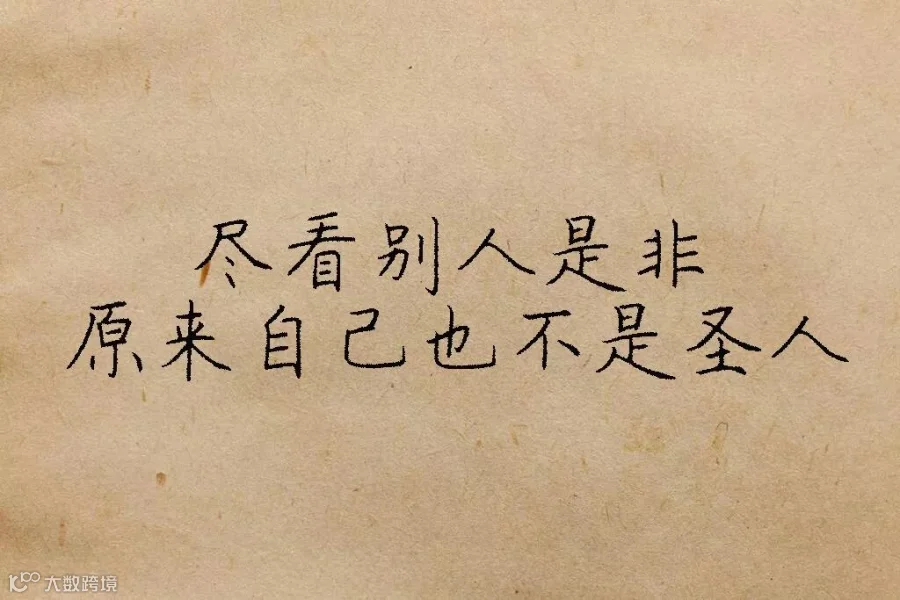 尽看别人是非
原来自己也不是圣人
大数跨境